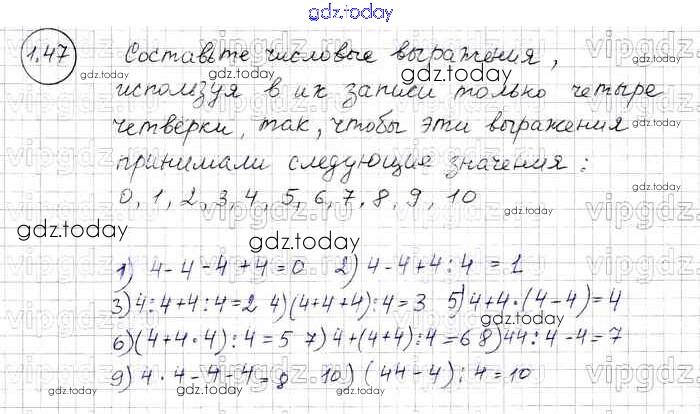 gdz.today
1.47 Составьте числовые выражения,
используя в их записи только четыре
четвёрки, так, чтобы эти выражения
принимали следующие значения:
0, 1, 2, 3, 4, 5, 6, 7, 8, 9, 10
1) 4-4-4+4=0 2) 4-4+4:4=1
3) 4:4+4:4=2 4) (4+4+4):4=3 5) 4+4·(4-4)=4
6) (4+4·4):4=5 7) 4+(4+4):4=6 8) 44:4-4=7
9) 4·4-4-4=8 10) (44-4):4=10
gdz.today
gdz.today
gdz.today
gdz.today
gdz.today
gdz.today
gdz.today
gdz.today
gdz.today
gdz.today
gdz.today
vipgdz
vipgdz
vipgdz